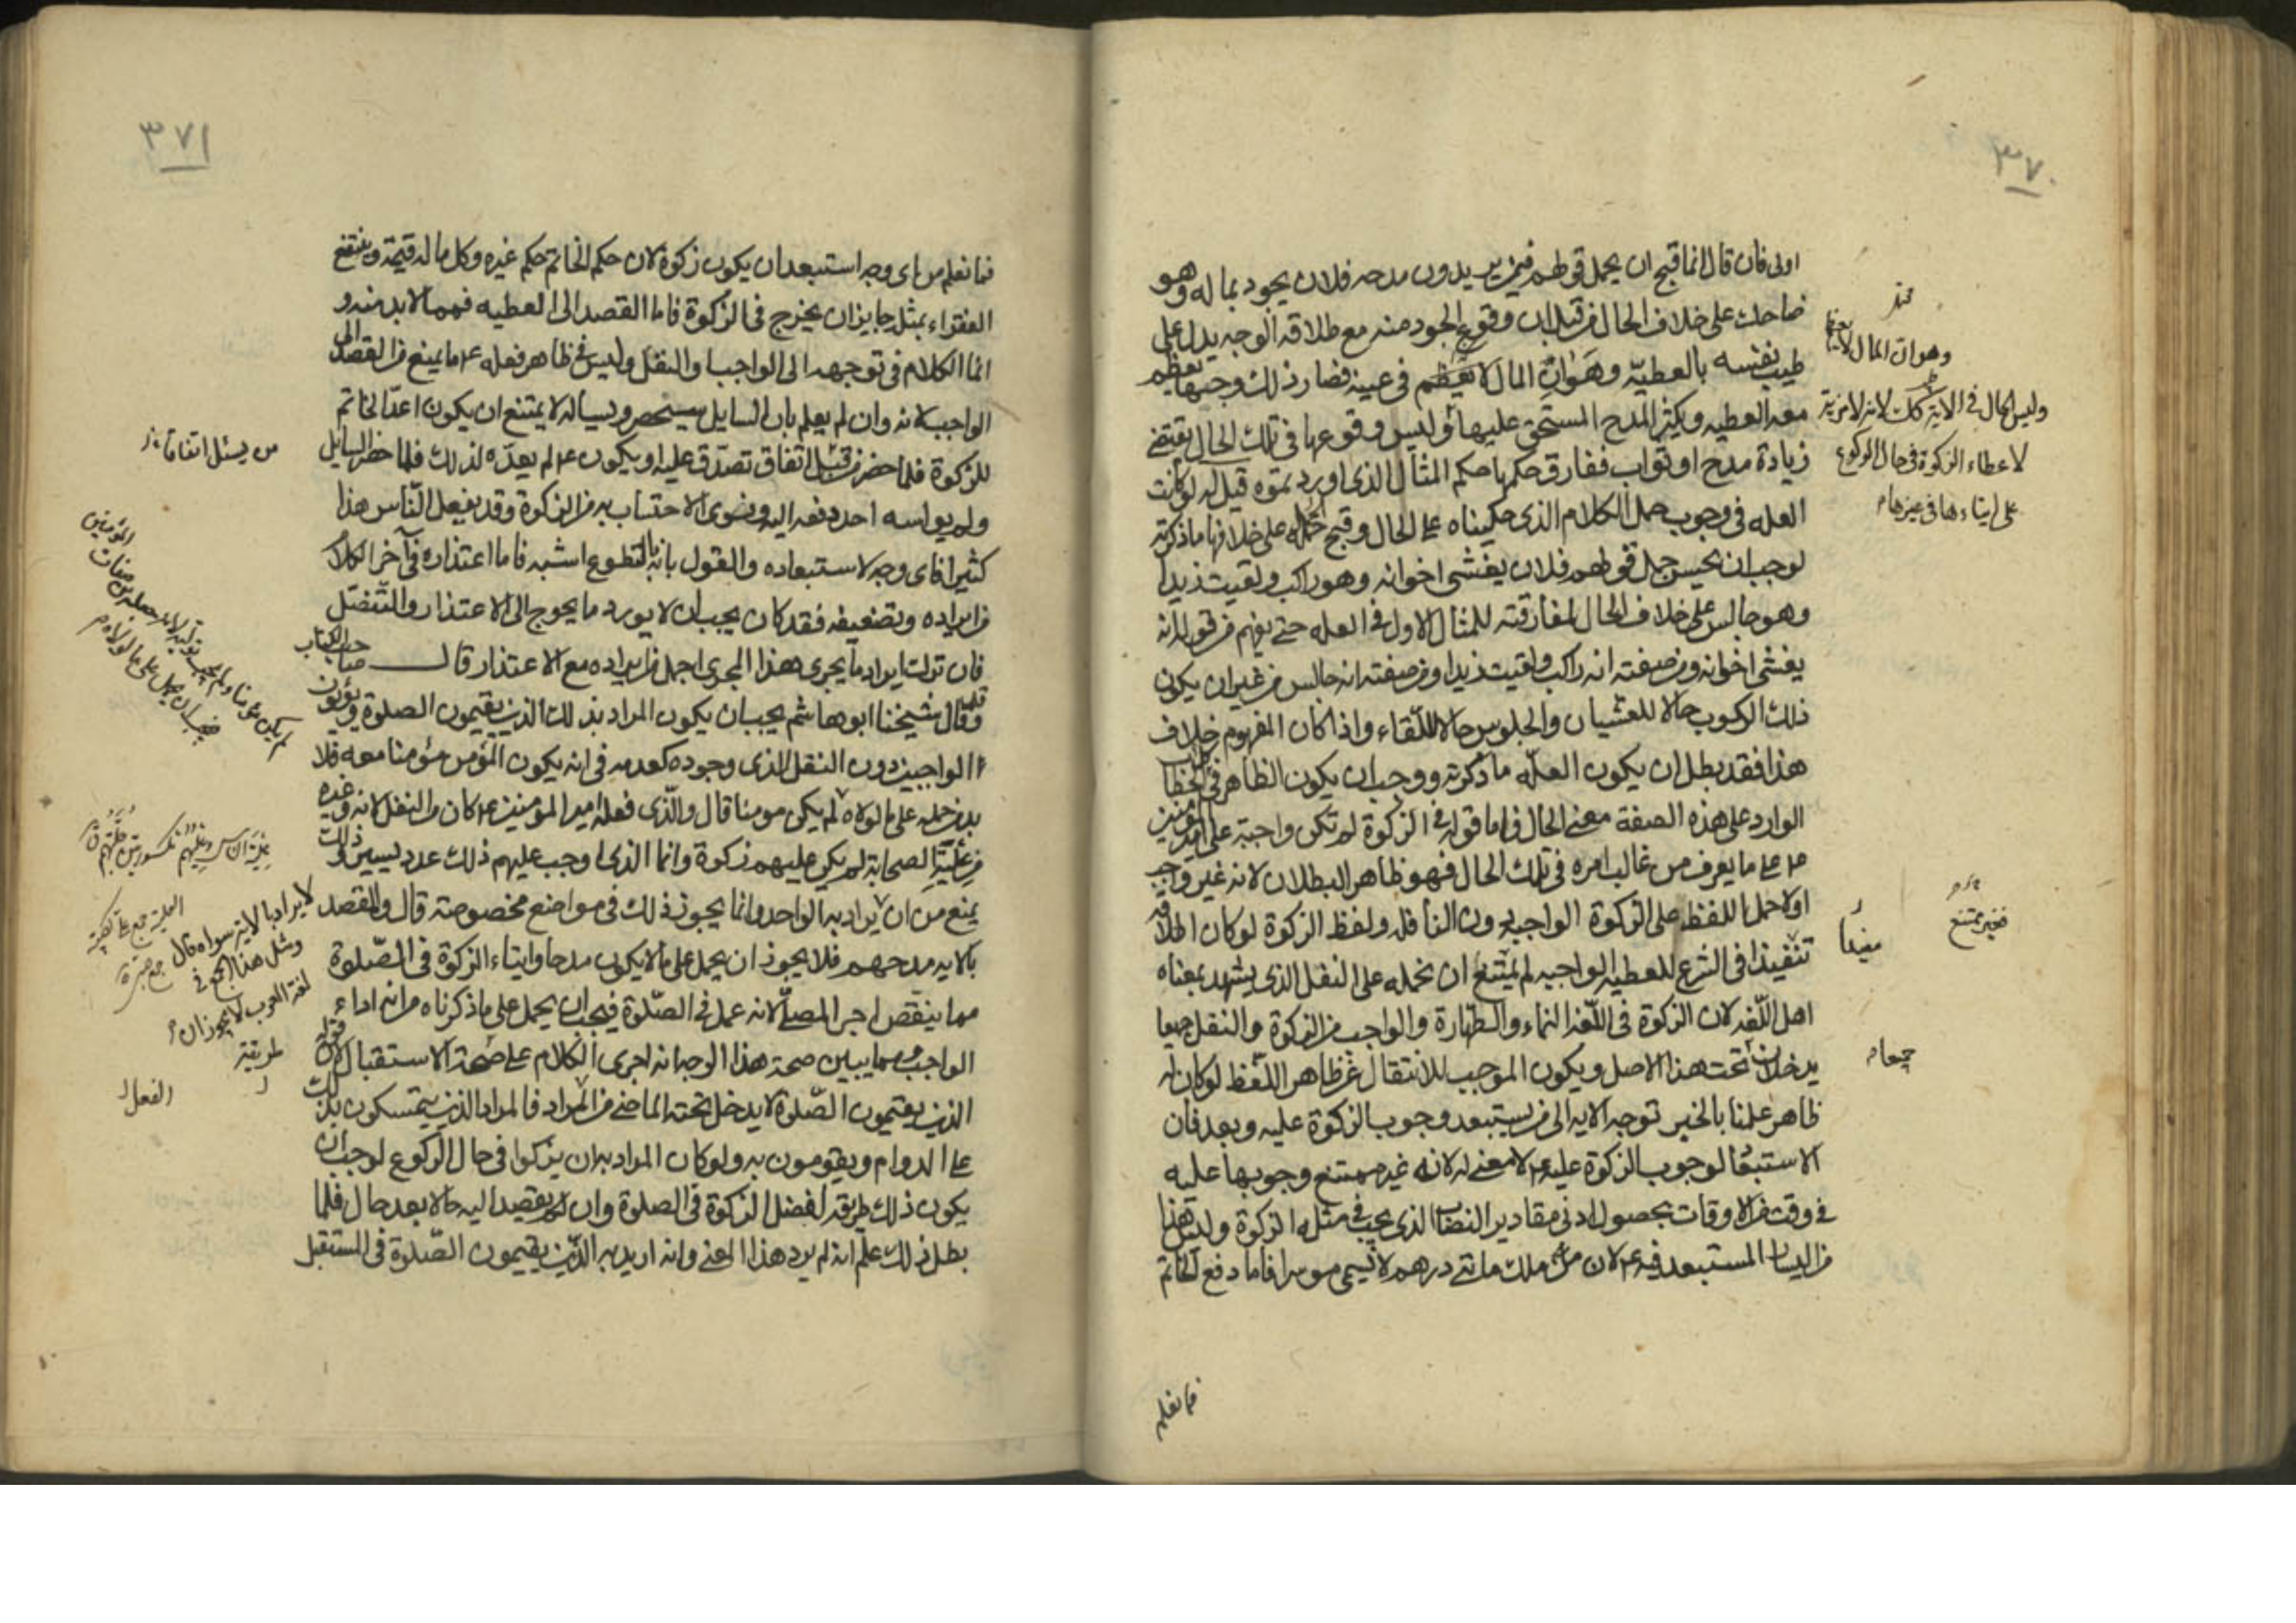 ٣٧٠
اولى فان قال انما قبح ان يحمل قولهم فيمن يريدون مدحه فلان يجود بماله وهو
ضاحك على خلاف الحال من قبل ان وقوع الجود منه مع طلاقة الوجه يدل على
طيب نفسه بالعطيّة وهَوَانِ المال لا يعظم في عينه فصار ذلك وجها يعظم
معه العطيه ويكثر المدح المستحق عليها وليس وقوعها في تلك الحال يقتضي
زيادة مدح او ثواب ففارق حكمها حكم المثال الذي اوردتموه قيل له لو كانت
العله في وجوب حمل الكلام الذي حكيناه على الحال وقبح حمله على خلافها ما ذكرته
لوجب ان يحسن حمل قولهم فلان يغشى اخوانه وهو راكب ولقيت زيدا
وهو جالس على خلاف الحال لمفارقته للمثال الاول في العله حتى يفهم من قوله انه
يغشى اخوانه ومن صفته انه راكب ولقيت زيدا ومن صفته انه جالس من غير ان يكون
ذلك الركوب حالا للغشيان والجلوس حالا للّقاء واذا كان المفهوم خلاف
هذا فقد بطل ان يكون العلّه ما ذكرته ووجب ان يكون الظاهر في الخطاب
الوارد على هذه الصفة معنى الحال فاما قوله في الزكوة لم تكن واجبة على امير المؤمنين
ع على ما يعرف من غالب امره في تلك الحال فهو ظاهر البطلان لانه غير واجب
اولا حمل اللفظ على الزكوة الواجبه دون النافله ولفظ الزكوة لو كان اطلاقه
في الشرع للعطيه الواجبه لم يمتنع ان نحمله على النفل الذي يشهد بمعناه
اهل اللّغه لان الزكوة في اللّغه النماء والطّهارة والواجب من الزكوة والنفل جميعا
يدخلان تحت هذا الاصل ويكون الموجب للانتقال عن ظاهر اللّفظ لو كان له
ظاهر علمنا بالخبر توجه الايه الى من يستبعد وجوب الزكوة عليه وبعد فان
الاستبعاد لوجوب الزكوة عليه ع لا معنى له لانه غير ممتنع وجوبها عليه
في وقت من الاوقات بحصول ادنى مقادير النصاب الذي يجب في مثله الزكوة وليس هذا
من اليسار المستبعد فيه ع لان من ملك مائتي درهم لا يسمى موسرا فاما دفع الخاتم
وهوان المال لا يعظم
وليس الحال في الاية كك لانه لا مزية
لاعطاء الزكوة في حال الركوع
على ايتاءها في غيرها م
فغير ممتنع
مفيدا
جميعا م
فما نعلم
٣٧١
فما نعلم من اى وجه استبعد ان يكون زكوة لان حكم الخاتم حكم غيره وكل ما له قيمة وينتفع
الفقراء بمثل جايز ان يخرج في الزكوة فاما القصد الى العطيه فمما لا بد منه و
انما الكلام في توجهه الى الواجب او النفل وليس في ظاهر فعله ع ما يمنع من القصد الى
الواجب لانه وان لم يعلم بان السايل سيحضر ويساله لا يمتنع ان يكون اعدّ الخاتم
للزكوة فلما حضر من قبل اتفاق تصدق عليه او يكون ع لم يعدّه لذلك فلما حضر السايل
ولم يواسه احد دفعه اليه ونوى الاحتساب به من الزكوة وقد يفعل النّاس هذا
كثيرا فاى وجه لاستبعاده والقول بانه بالتطوع اشبه فاما اعتذاره في آخر الكلام
من ايراده وتضعيفه فقد كان يجب ان لا يورد ما يحوج الى الاعتذار والتنصّل
فان ترك ايراد ما يجرى هذا المجرى اجمل من ايراده مع الاعتذار قال صاحب الكتاب
وقال شيخنا ابو هاشم يجب ان يكون المراد بذلك الذين يقيمون الصلوة ويؤتون
الواجبين دون النفل الذى وجوده كعدمه في انه يكون المؤمن مؤمنا معه فلا
بد من حمله على ما لولاه لم يكن مومنا قال والّذي فعله امير المؤمنين ع كان من النفل لانه وغيره
من عِلْيَةِ الصحابة لم يكن عليهم زكوة وانما الذى اوجب عليهم ذلك عدد يسير وذلك
يمنع من ان يراد به الواحد وانما يجوز ذلك في مواضع مخصوصة قال والمقصد
بالايه مدحهم فلا يجوز ان يحمل على ما لا يكون مدحا وايتاء الزكوة في الصّلوة
مما ينقص اجر المصلّى لانه عمل في الصّلوة فيجب ان يحمل على ما ذكرناه من انه اداء
الواجب ومما يبين صحة هذا الوجه انه اجرى الكلام على صحة الاستقبال لان قوله
الذين يقيمون الصّلوة لا يدخل تحته الماضي من المراد فالمراد الذين يتمسكون بذلك
على الدوام ويقومون به ولو كان المراد به ان يزكوا في حال الركوع لوجب ان
يكون ذلك طريقه لفضل الزكوة في الصلوة وان لم يقصد اليه حالا بعد حال فلما
بطل ذلك علم انه لم يرد هذا المعنى وانه اريد به الذّين يقيمون الصّلوة في المستقبل
من يسئل اتفاقا
لا يراد بالاية سواه قال
ومثل هذا الجمع في
لغة العرب لا يجوز ان
طريقة
الفعل